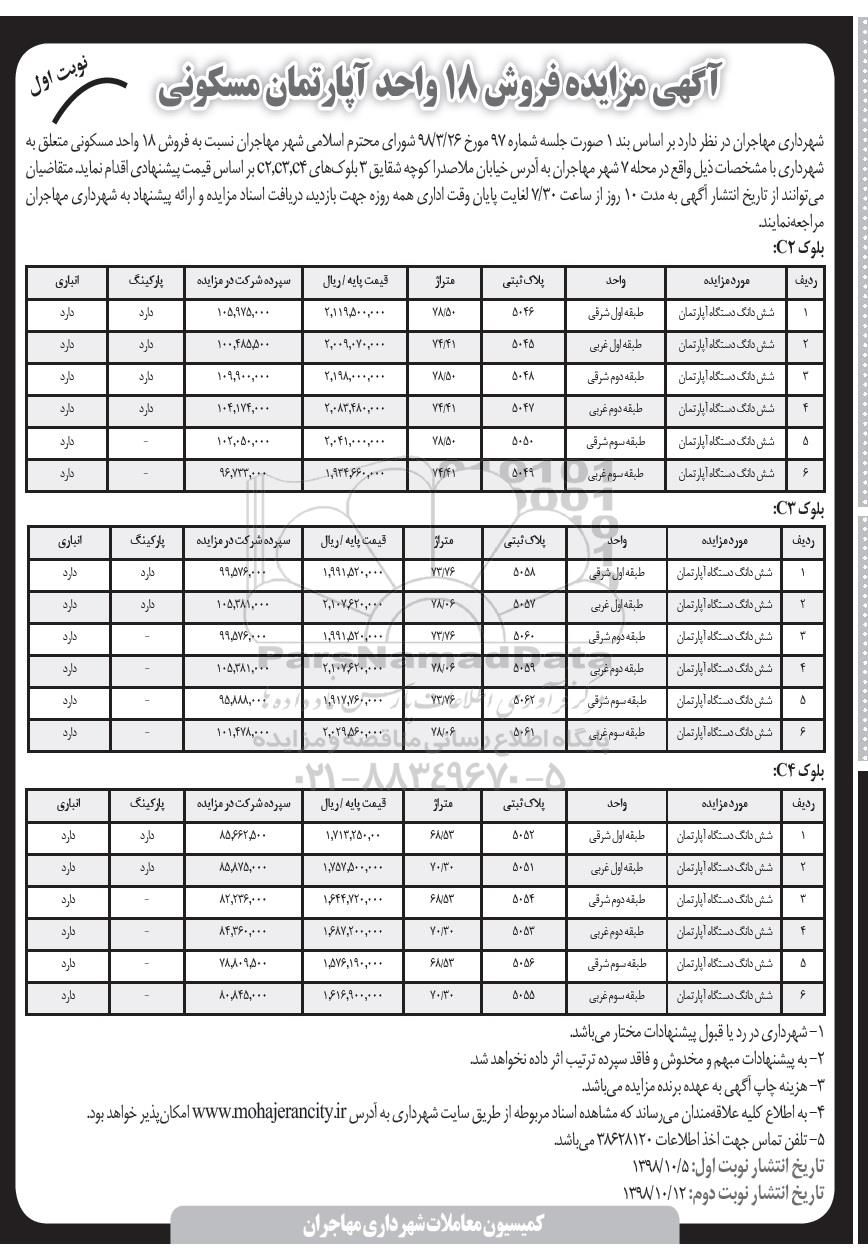 نوبت اول
آگهی مزایده فروش ۱۸ واحد آپارتمان مسکونی
شهرداری مهاجران در نظر دارد بر اساس بند ۱ صورت جلسه شماره ۹۷ مورخ ۹۸/۳/۲۶ شورای محترم اسلامی شهر مهاجران نسبت به فروش ۱۸ واحد مسکونی متعلق به
شهرداری با مشخصات ذیل واقع در محله ۷ شهر مهاجران به آدرس خیابان ملاصدرا کوچه شقایق ۳ بلوک‌های c۲,c۳,c۴ بر اساس قیمت پیشنهادی اقدام نماید. متقاضیان
می‌توانند از تاریخ انتشار آگهی به مدت ۱۰ روز از ساعت ۷/۳۰ لغایت پایان وقت اداری همه روزه جهت بازدید، دریافت اسناد مزایده و ارائه پیشنهاد به شهرداری مهاجران
مراجعه‌نمایند.
بلوک C۲:
ردیف مورد مزایده واحد پلاک ثبتی متراژ قیمت پایه / ریال سپرده شرکت در مزایده پارکینگ انباری
۱ شش دانگ دستگاه آپارتمان طبقه اول شرقی ۵۰۴۶ ۷۸/۵۰ ۲,۱۱۹,۵۰۰,۰۰۰ ۱۰۵,۹۷۵,۰۰۰ دارد دارد
۲ شش دانگ دستگاه آپارتمان طبقه اول غربی ۵۰۴۵ ۷۴/۴۱ ۲,۰۰۹,۰۷۰,۰۰۰ ۱۰۰,۴۸۵,۵۰۰ دارد دارد
۳ شش دانگ دستگاه آپارتمان طبقه دوم شرقی ۵۰۴۸ ۷۸/۵۰ ۲,۱۹۸,۰۰۰,۰۰۰ ۱۰۹,۹۰۰,۰۰۰ دارد دارد
۴ شش دانگ دستگاه آپارتمان طبقه دوم غربی ۵۰۴۷ ۷۴/۴۱ ۲,۰۸۳,۴۸۰,۰۰۰ ۱۰۴,۱۷۴,۰۰۰ دارد دارد
۵ شش دانگ دستگاه آپارتمان طبقه سوم شرقی ۵۰۵۰ ۷۸/۵۰ ۲,۰۴۱,۰۰۰,۰۰۰ ۱۰۲,۰۵۰,۰۰۰ - دارد
۶ شش دانگ دستگاه آپارتمان طبقه سوم غربی ۵۰۴۹ ۷۴/۴۱ ۱,۹۳۴,۶۶۰,۰۰۰ ۹۶,۷۳۳,۰۰۰ - دارد
بلوک C۳:
ردیف مورد مزایده واحد پلاک ثبتی متراژ قیمت پایه / ریال سپرده شرکت در مزایده پارکینگ انباری
۱ شش دانگ دستگاه آپارتمان طبقه اول شرقی ۵۰۵۸ ۷۳/۷۶ ۱,۹۹۱,۵۲۰,۰۰۰ ۹۹,۵۷۶,۰۰۰ دارد دارد
۲ شش دانگ دستگاه آپارتمان طبقه اول غربی ۵۰۵۷ ۷۸/۰۶ ۲,۱۰۷,۶۲۰,۰۰۰ ۱۰۵,۳۸۱,۰۰۰ دارد دارد
۳ شش دانگ دستگاه آپارتمان طبقه دوم شرقی ۵۰۶۰ ۷۳/۷۶ ۱,۹۹۱,۵۲۰,۰۰۰ ۹۹,۵۷۶,۰۰۰ - دارد
۴ شش دانگ دستگاه آپارتمان طبقه دوم غربی ۵۰۵۹ ۷۸/۰۶ ۲,۱۰۷,۶۲۰,۰۰۰ ۱۰۵,۳۸۱,۰۰۰ - دارد
ParsNamadData
۵ شش دانگ دستگاه آپارتمان طبقه سوم شرقی ۵۰۶۲ ۷۳/۷۶ ۱,۹۱۷,۷۶۰,۰۰۰ ۹۵,۸۸۸,۰۰۰ - دارد
۶ شش دانگ دستگاه آپارتمان طبقه سوم غربی ۵۰۶۱ ۷۸/۰۶ ۲,۰۲۹,۵۶۰,۰۰۰ ۱۰۱,۴۷۸,۰۰۰ - دارد
پایگاه اطلاع رسانی مناقصه و مزایده
۰۲۱-۸۸۳۴۹۶۷۰-۵
بلوک C۴:
ردیف مورد مزایده واحد پلاک ثبتی متراژ قیمت پایه / ریال سپرده شرکت در مزایده پارکینگ انباری
۱ شش دانگ دستگاه آپارتمان طبقه اول شرقی ۵۰۵۲ ۶۸/۵۳ ۱,۷۱۳,۲۵۰,۰۰ ۸۵,۶۶۲,۵۰۰ دارد دارد
۲ شش دانگ دستگاه آپارتمان طبقه اول غربی ۵۰۵۱ ۷۰/۳۰ ۱,۷۵۷,۵۰۰,۰۰۰ ۸۵,۸۷۵,۰۰۰ دارد دارد
۳ شش دانگ دستگاه آپارتمان طبقه دوم شرقی ۵۰۵۴ ۶۸/۵۳ ۱,۶۴۴,۷۲۰,۰۰۰ ۸۲,۲۳۶,۰۰۰ - دارد
۴ شش دانگ دستگاه آپارتمان طبقه دوم غربی ۵۰۵۳ ۷۰/۳۰ ۱,۶۸۷,۲۰۰,۰۰۰ ۸۴,۳۶۰,۰۰۰ - دارد
۵ شش دانگ دستگاه آپارتمان طبقه سوم شرقی ۵۰۵۶ ۶۸/۵۳ ۱,۵۷۶,۱۹۰,۰۰۰ ۷۸,۸۰۹,۵۰۰ - دارد
۶ شش دانگ دستگاه آپارتمان طبقه سوم غربی ۵۰۵۵ ۷۰/۳۰ ۱,۶۱۶,۹۰۰,۰۰۰ ۸۰,۸۴۵,۰۰۰ - دارد
۱- شهرداری در رد یا قبول پیشنهادات مختار می‌باشد.
۲- به پیشنهادات مبهم و مخدوش و فاقد سپرده ترتیب اثر داده نخواهد شد.
۳- هزینه چاپ آگهی به عهده برنده مزایده می‌باشد.
۴- به اطلاع کلیه علاقه‌مندان می‌رساند که مشاهده اسناد مربوطه از طریق سایت شهرداری به آدرس www.mohajerancity.ir امکان‌پذیر خواهد بود.
۵- تلفن تماس جهت اخذ اطلاعات ۳۸۶۲۸۱۲۰ می‌باشد.
تاریخ انتشار نوبت اول: ۱۳۹۸/۱۰/۵
تاریخ انتشار نوبت دوم: ۱۳۹۸/۱۰/۱۲
کمیسیون معاملات شهرداری مهاجران